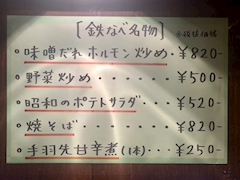 [鉄なべ名物]
※税抜価格
・味噌だれホルモン炒め・¥820-
・野菜炒め・・・・・・¥500-
・昭和のポテトサラダ・・・¥520-
・焼そば・・・・・・・¥820-
・手羽先甘辛煮(1本)・・・¥250-